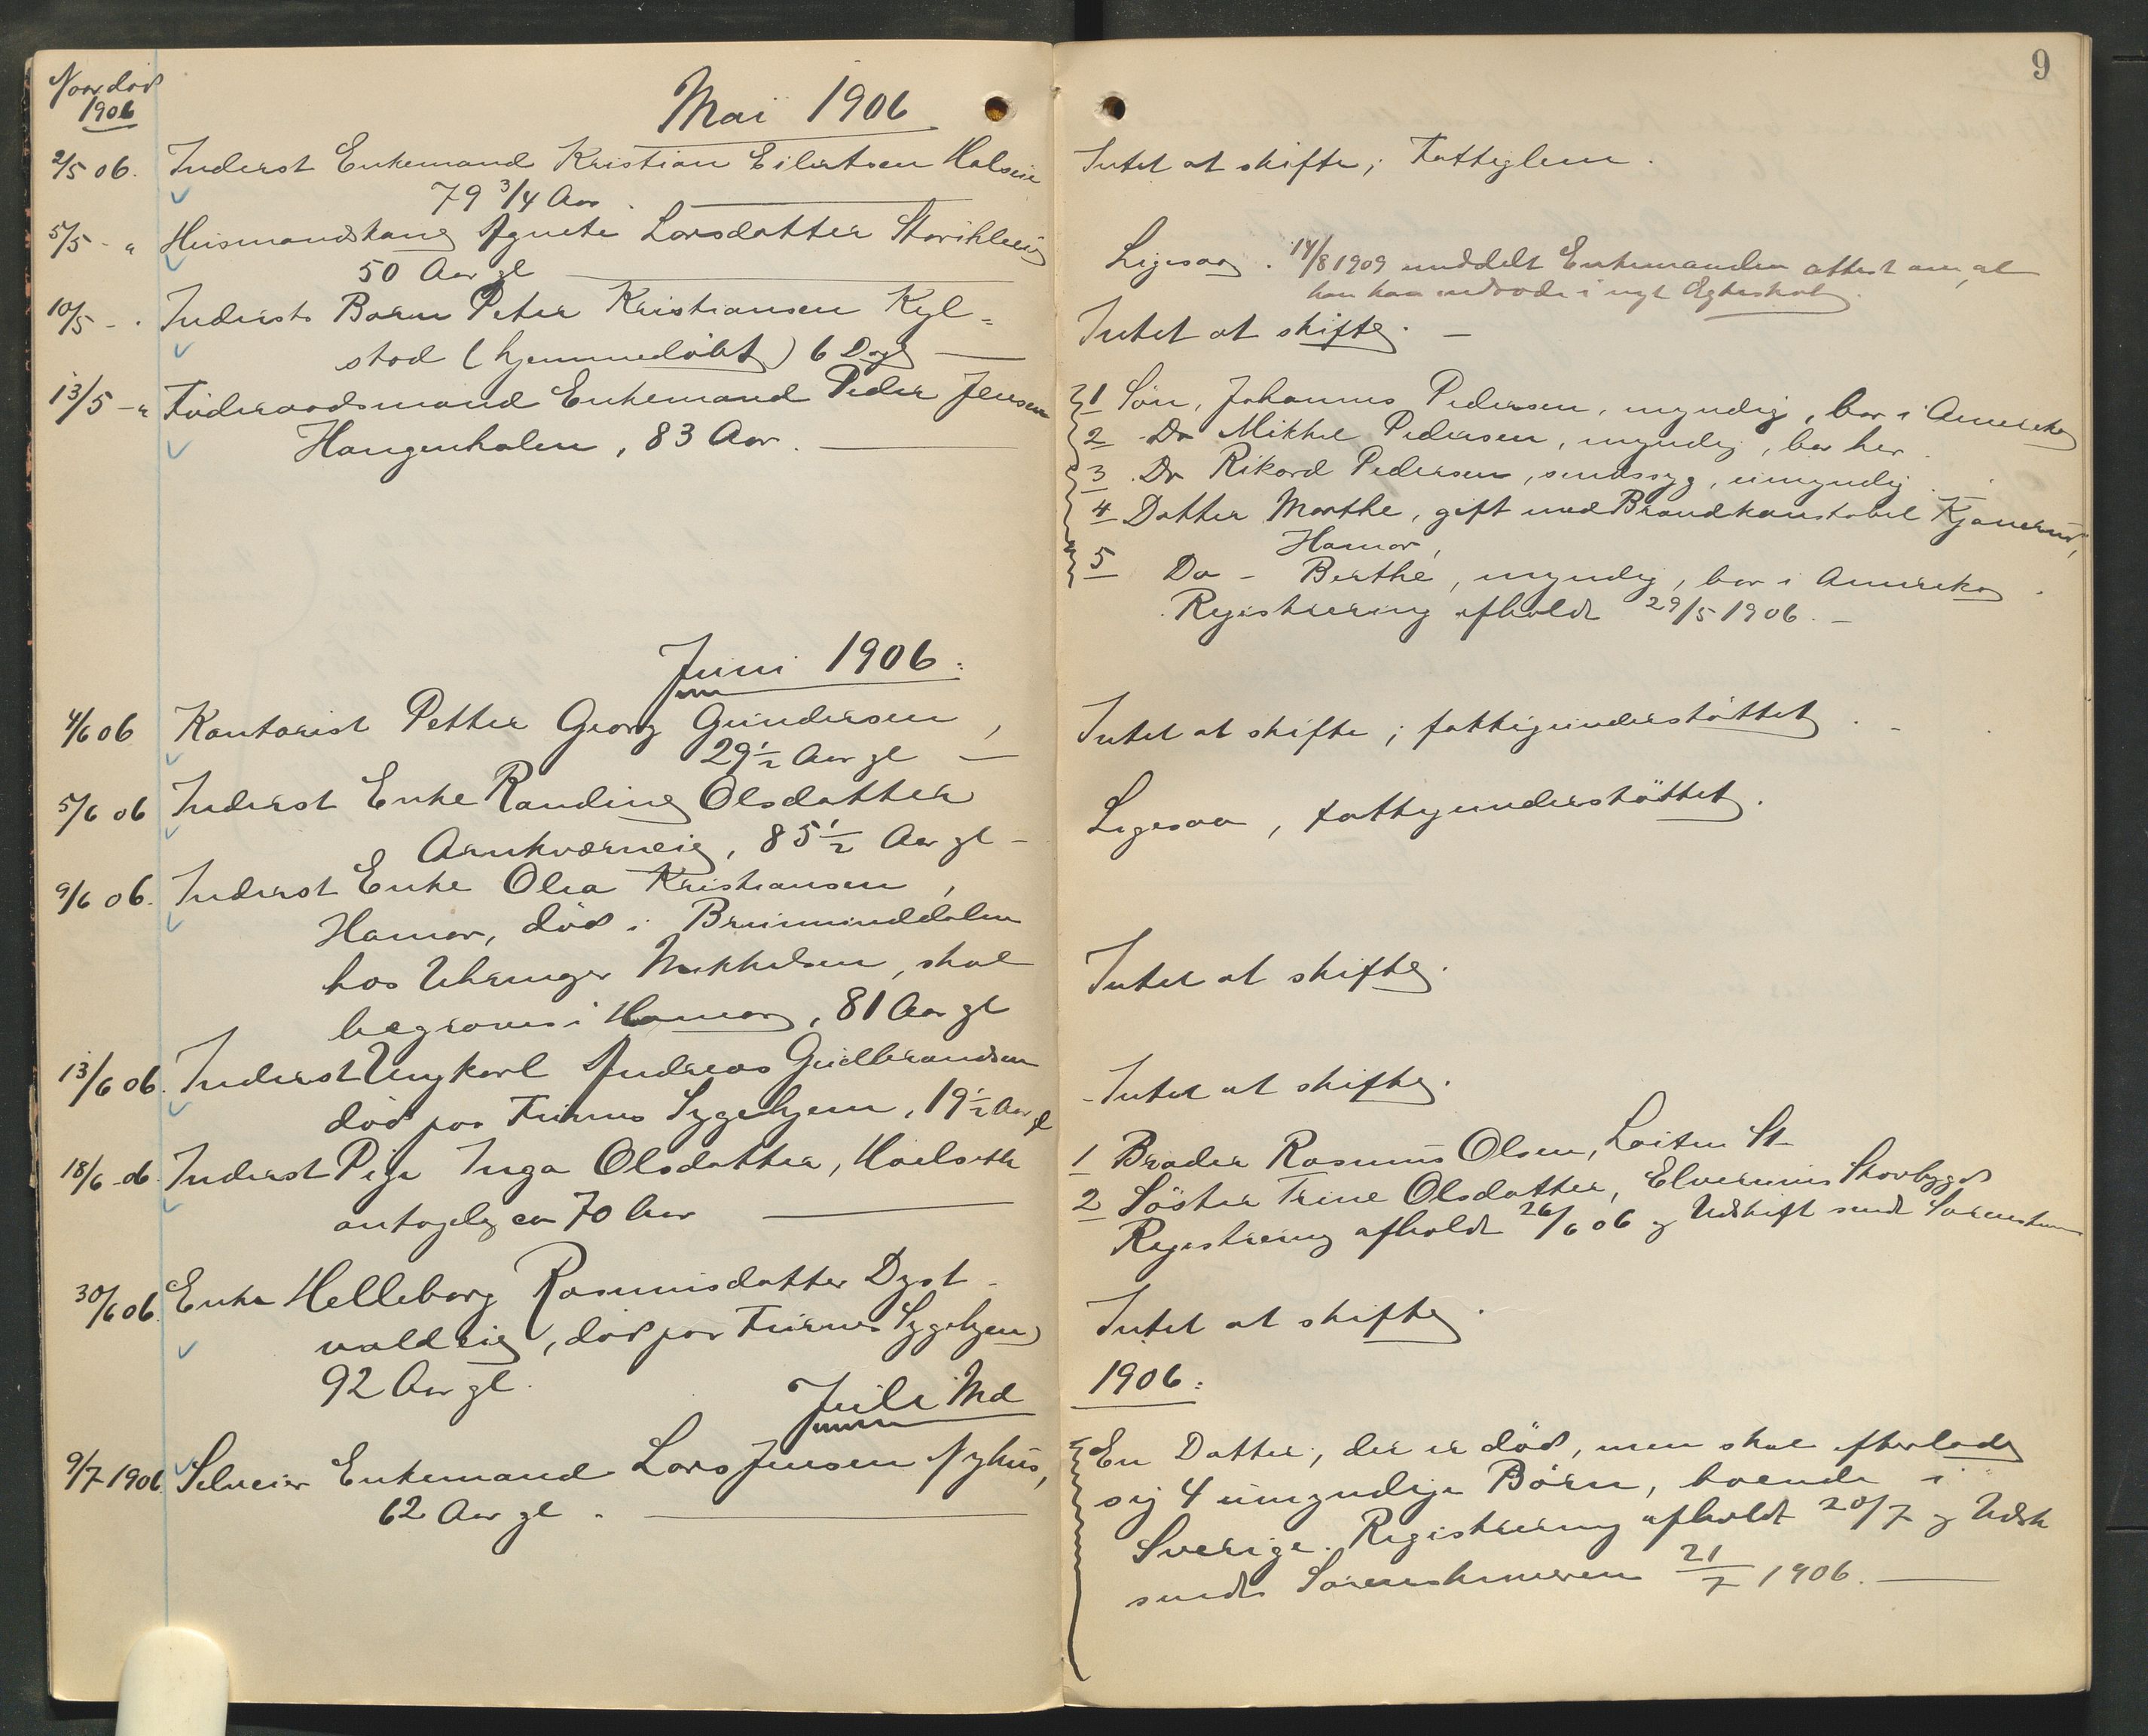 Naar død
1906
Mai 1906
2/5 06. Inderst Enkemand Kristian Eilertsen Halseie
79 3/4 Aar.
5/5 - " Husmandskone Agnete Larsdatter
50 Aar gl
10/5 - " Inderste Barn Peter Kristiansen Kyl=
stad (hjemmedøbt) 6 Dage
13/5 - " Føderaadsmand Enkemand Peder Jensen
Haugenhalen, 83 Aar.
Juni 1906.
4/6 06 Kontorist Petter Georg Gundersen,
29 1/2 Aar gl
5/6 06 Inderst Enke Randine Olsdatter
Arnkværneie, 85 1/2 Aar gl -
9/6 06. Inderst Enke Olea Kristiansen,
Hamar, død i Brumunddalen
hos Uhrmager Mikkelsen, skal
begraves i Hamar, 81 Aar gl
13/6 06. Inderst Ungkarl Andreas Gudbrandsen
død paa Furnes Sygehjem, 19 1/2 Aar gl
18/6 - 06. Inderst Pige Inga Olsdatter,
antagelig ca 70 Aar
30/6 06. Enke Helleborg Rasmusdatter Dyst-
valdeie, død paa Furnes Sygehjem
92 Aar gl.
Juli Md
9/7 1906. Selveier Enkemand Lars Jensen Nyhus,
62 Aar gl.
9
Intet at skifte; Fattiglem.
Ligesaa. 14/8 1909 meddelt Enkemanden attest om, at
han kan indtræde i nyt Ægteskab.
Intet at skifte. -
1 Søn, Johannes Pedersen, myndig, bor i Amerika
2 Do Mikkel Pedersen, myndig, bor her.
3 Do Rikard Pedersen, sindssyg, umyndig.
4 Datter Marthe, gift med Brandkonstabel
Hamar,
5 Do - Berthe, myndig, bor i Amerika.
Registrering afholdt 29/5 1906. -
Intet at skifte; fattigunderstøttet. -
Ligesaa, fattigunderstøttet.
Intet at skifte.
- Intet at skifte.
1 Broder Rasmus Olsen, Løiten St
2 Søster Trine Olsdatter, Elverums Skovbygd
Registrering afholdt 26/6 06 og Udskrift sendt Sorenskr
Intet at skifte.
1906.
En Datter, der er død, men skal efterlade
sig 4 umyndige Børn, boende i
Sverige. Registrering afholdt 20/7 og Udsk
sendt Sorenskriveren 21/7 1906.